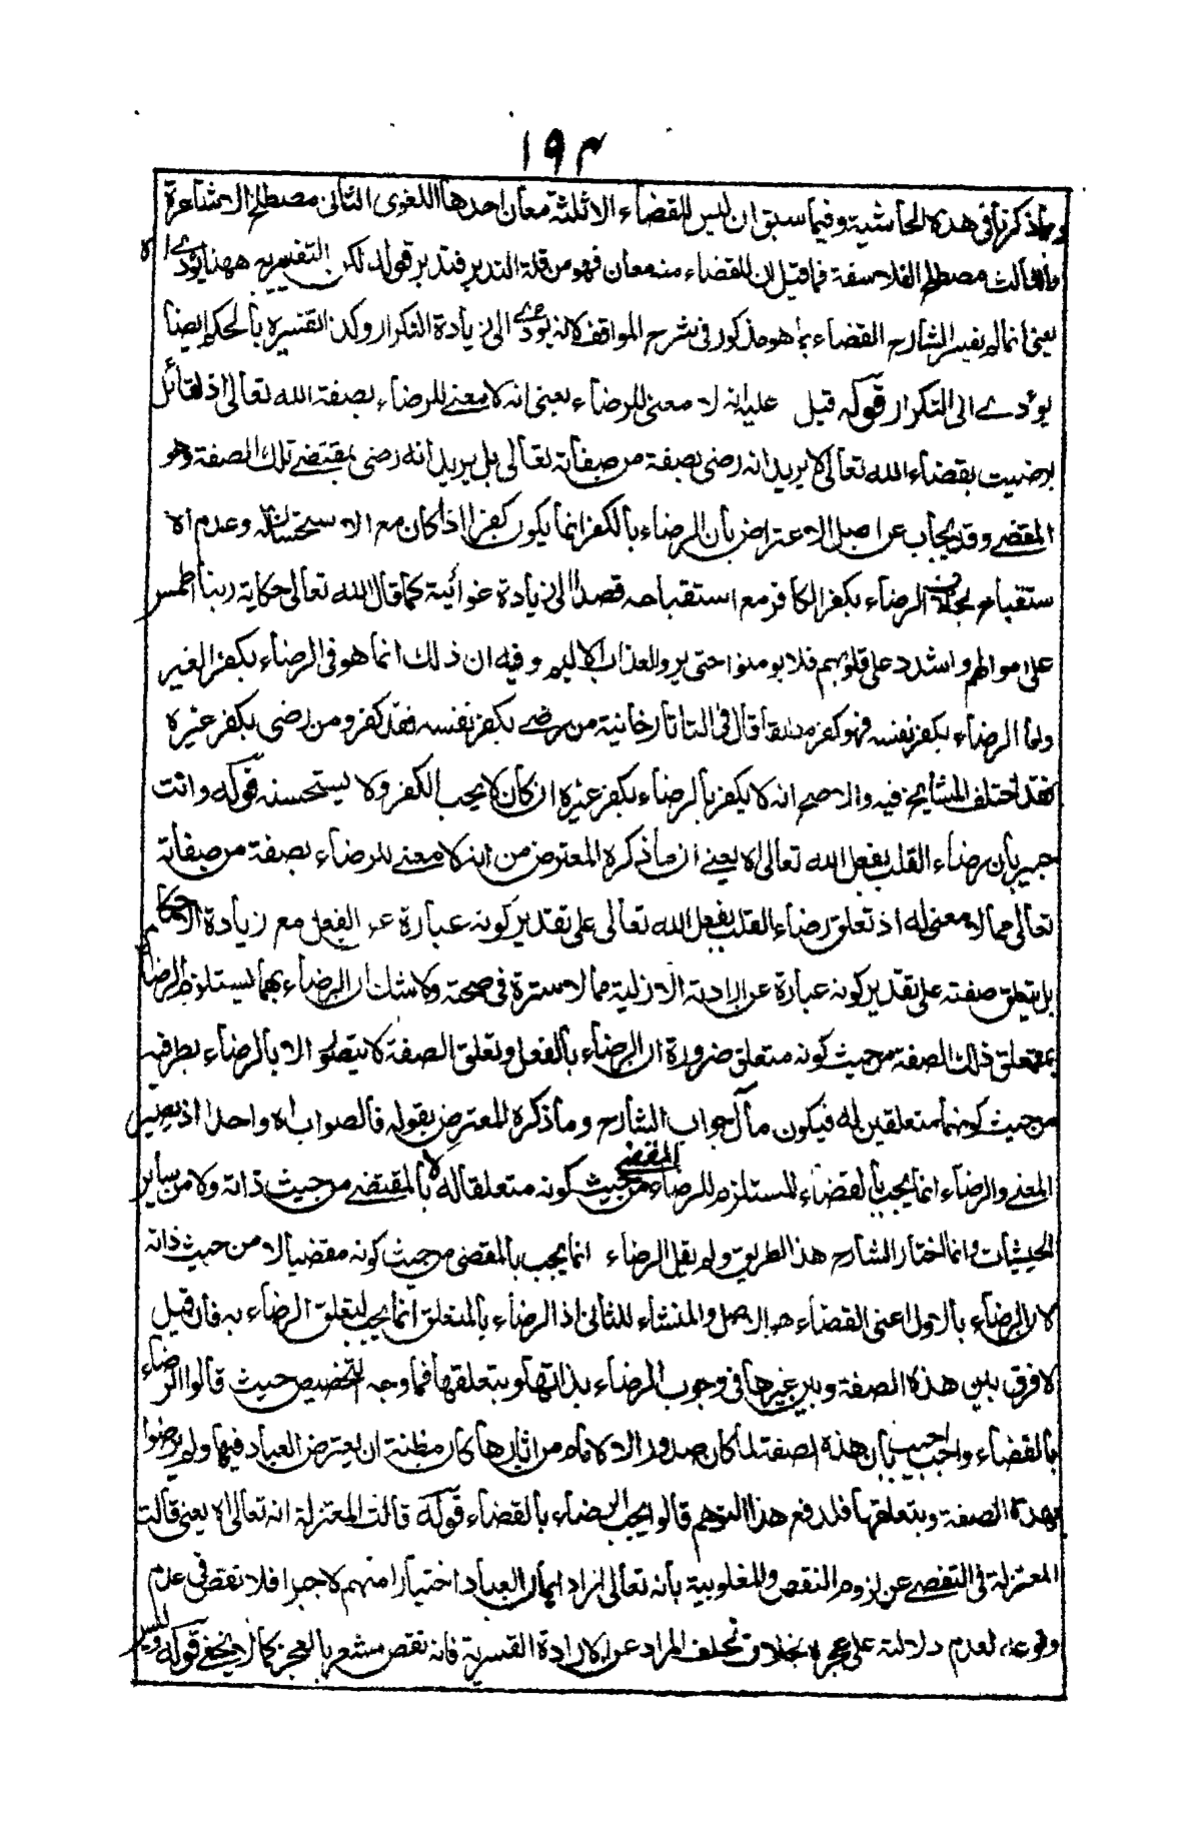 ١٩٤
وما ذكرنا فى هذه الحاشية وفيما سبق ان ليس للقضاء الا ثلثة معان احدها اللغوى الثانى مصطلح الاشاعرة
والثالث مصطلح الفلاسفة فما قيل ان للقضاء منه معان فهو من قلة التدبر فتدبر قوله لكن التفسير به ههنا يؤدى اه
يعنى انما لم يفسر الشارح القضاء بما هو مذكور فى شرح المواقف لانه يؤدى الى زيادة التكرار وكذا تفسيره بالحكم ايضا
يؤدى الى التكرار قوله قيل عليه انه لا معنى للرضاء يعنى انه لا معنى للرضاء بصفة الله تعالى اذ القائل
برضيت بقضاء الله تعالى لا يريد انه رضى بصفة من صفاته تعالى بل يريد انه رضى بمقتضى تلك الصفة وهو
المقضى وقد يجاب عن اصل الاعتراض بأن الرضاء بالكفر انما يكون كفرا اذا كان مع الاستحسان له وعدم الا
ستقباح بخلاف الرضاء بكفر الكافر مع استقباحه قصدا الى زيادة غوائية كما قال الله تعالى حكاية ربنا اطمس
على اموالهم واشدد على قلوبهم فلا يومنوا حتى يروا العذاب الاليم وفيه ان ذلك انما هو فى الرضاء بكفر الغير
واما الرضاء بكفر نفسه فهو كفر مطلقا قال فى التاتارخانية من رضى بكفر نفسه فقد كفر ومن رضى بكفر غيره
فقد اختلف المشايخ فيه والاصح انه لا يكفر بالرضاء بكفر غيره ان كان لا يحب الكفر ولا يستحسنه قوله وانت
خبير بأن رضاء القلب بفعل الله تعالى اه يعنى ان ما ذكره المعترض من انه لا معنى للرضاء بصفة من صفاته
تعالى مما لا معنى له اذ تعلق رضاء القلب بفعل الله تعالى على تقدير كونه عبارة عن الفعل مع زيادة الاحكام
بل بتعلق صفته على تقدير كونه عبارة عن الارادته الازلية مما لا سترة فى صحته ولا شك ان الرضاء بهما يستلزم الرضاء
بمتعلق ذلك الصفة من حيث كونه متعلق ضرورة ان الرضاء بالفعل وتعلق الصفة لا يتصور الا بالرضاء بطرفيه
من حيث كونهما متعلقين له فيكون مآل جواب الشارح وما ذكره المعترض بقوله فالصواب اه واحدا اذ يصير
المعنى والرضاء انما يجب بالقضاء المستلزم للرضاء المقضى من حيث كونه متعلقا له لا بالمقتضى من حيث ذاته ولا من ساير
الحيثيات وانما اختار الشارح هذا الطريق ولم يقل الرضاء انما يجب بالمقضى من حيث كونه مقضيا لا من حيث ذاته
لان الرضاء بالاول اعنى القضاء هو الاصل والمنشاء للثانى اذ الرضاء بالمتعلق انما يجب لتعلق الرضاء به فان قيل
لا فرق بين هذه الصفة وبين غيرها فى وجوب الرضاء بذاتها وبتعلقها فما وجه التخصيص حيث قالوا الرضاء
بالقضاء واجب اجيب بأن هذه الصفة لما كان صدور الالام من اثارها كان مظنة ان يعترض العباد فيها ولم يرضوا
بهذه الصفة وبتعلقها فلدفع هذا التوهم قالوا يجب الرضاء بالقضاء قوله قالت المعتزلة انه تعالى اه يعنى قالت
المعتزلة فى التفصى عن لزوم النقص والمغلوبية بأنه تعالى اراد ايمان العباد اختيارا منهم لا جبرا فلا نقص فى عدم
وقوعه لعدم دلالته على عجزه بخلاف تخلف المراد عن الارادة القسرية فانه نقص مشعر بالعجز كما لا يخفى قوله وليس